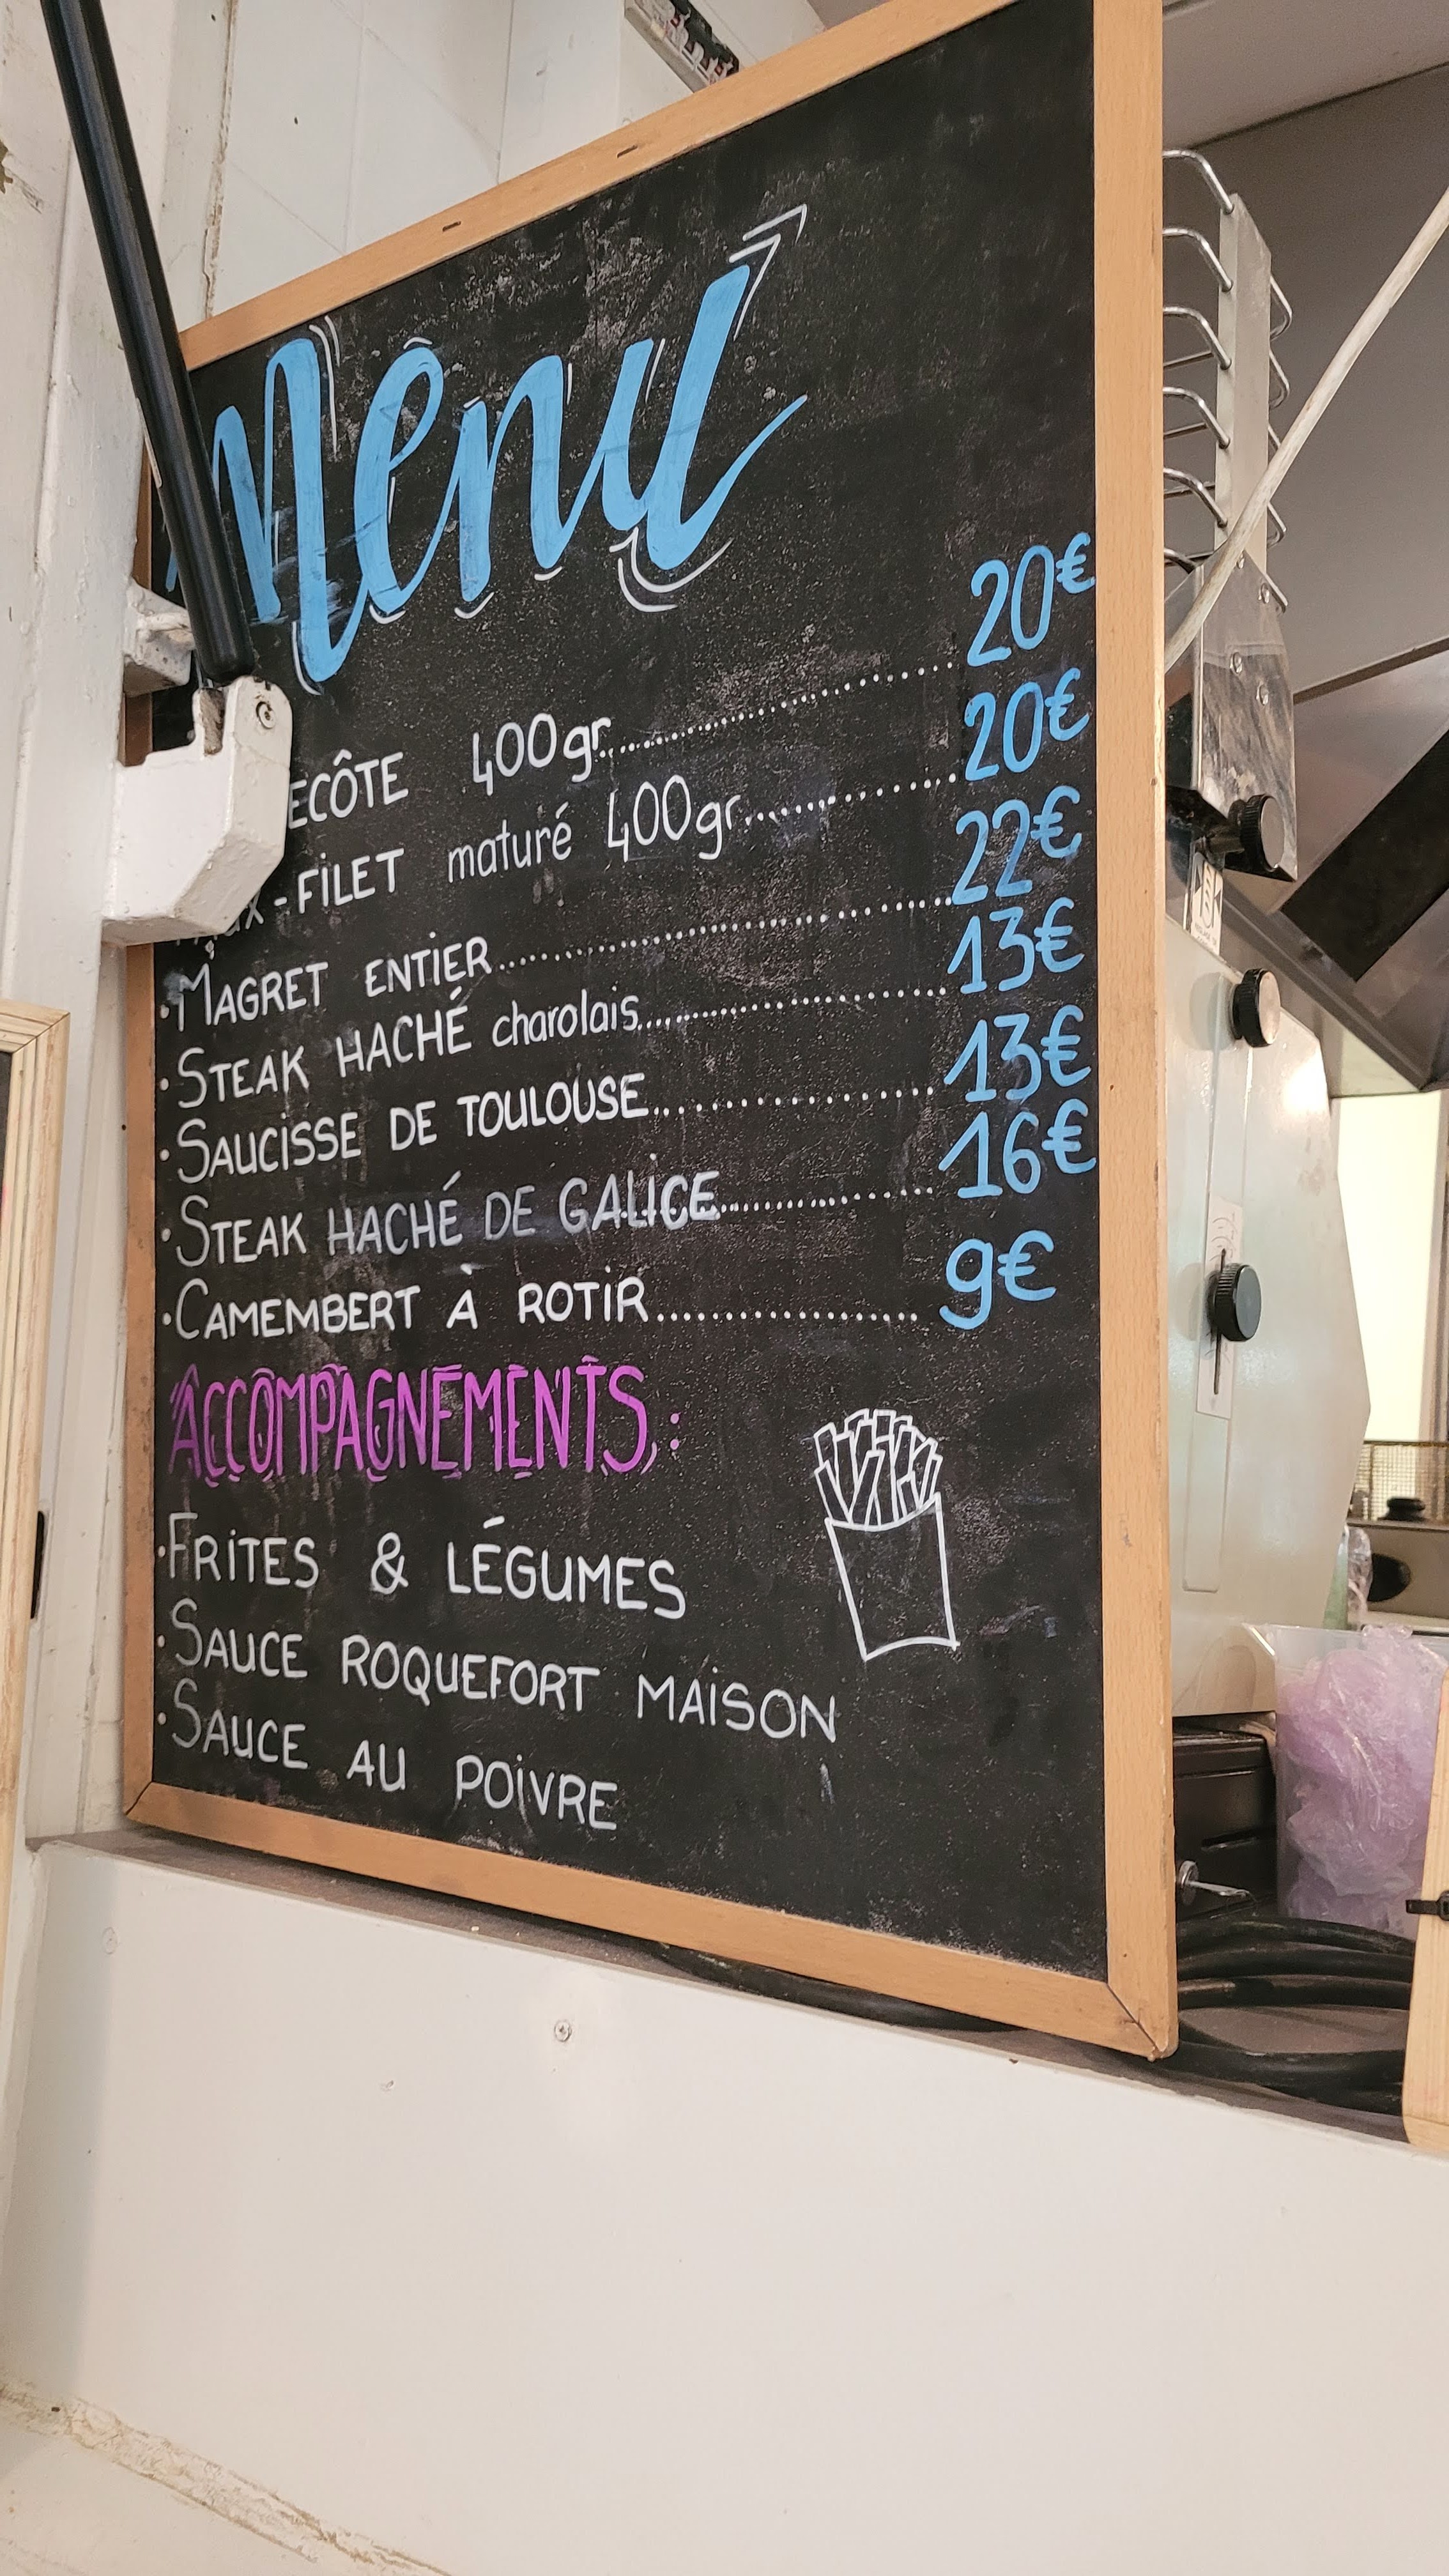 Menu
ECÔTE 400gr.................... 20€
-FILET maturé 400gr.................... 20€
•MAGRET ENTIER.................... 22€
•STEAK HACHÉ charolais.................... 13€
•SAUCISSE DE TOULOUSE.................... 13€
•STEAK HACHÉ DE GALICE.................... 16€
•CAMEMBERT À ROTIR.................... 9€
ACCOMPAGNEMENTS :
•FRITES & LÉGUMES
•SAUCE ROQUEFORT MAISON
•SAUCE AU POIVRE